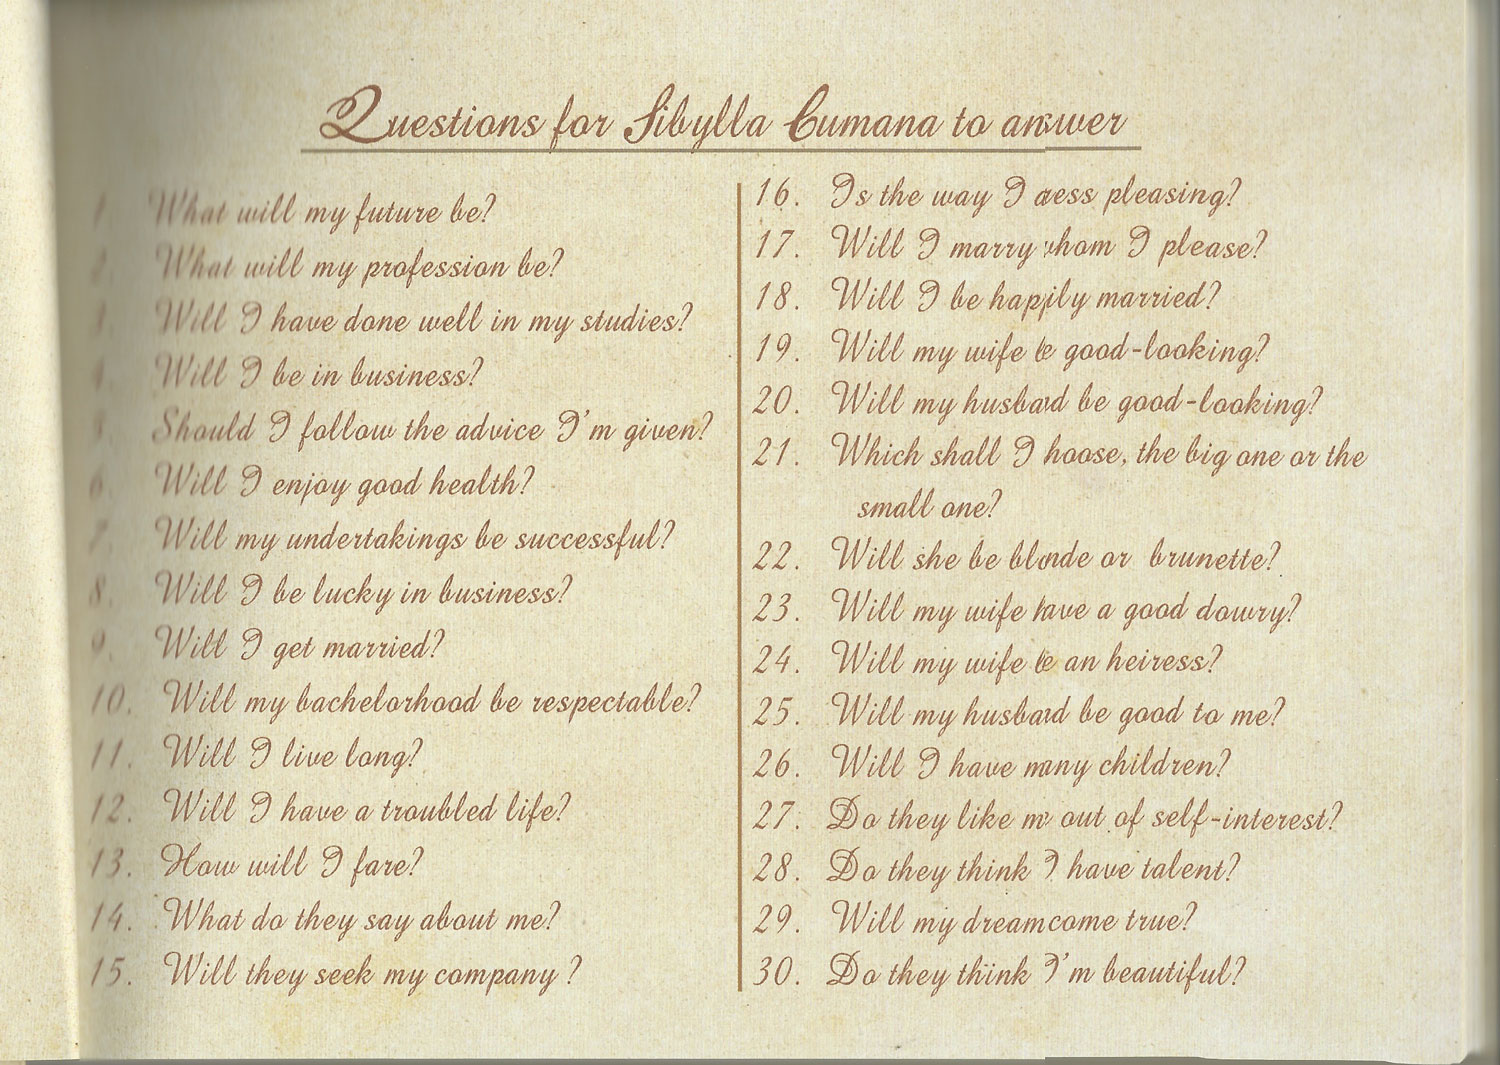 Questions for Sibylla Cumana to answer
1. What will my future be?
2. What will my profession be?
3. Will I have done well in my studies?
4. Will I be in business?
5. Should I follow the advice I'm given?
6. Will I enjoy good health?
7. Will my undertakings be successful?
8. Will I be lucky in business?
9. Will I get married?
10. Will my bachelorhood be respectable?
11. Will I live long?
12. Will I have a troubled life?
13. How will I fare?
14. What do they say about me?
15. Will they seek my company ?
16. Is the way I dress pleasing?
17. Will I marry whom I please?
18. Will I be happily married?
19. Will my wife be good-looking?
20. Will my husband be good-looking?
21. Which shall I choose, the big one or the
small one?
22. Will she be blonde or brunette?
23. Will my wife have a good dowry?
24. Will my wife be an heiress?
25. Will my husband be good to me?
26. Will I have many children?
27. Do they like me out of self-interest?
28. Do they think I have talent?
29. Will my dream come true?
30. Do they think I'm beautiful?